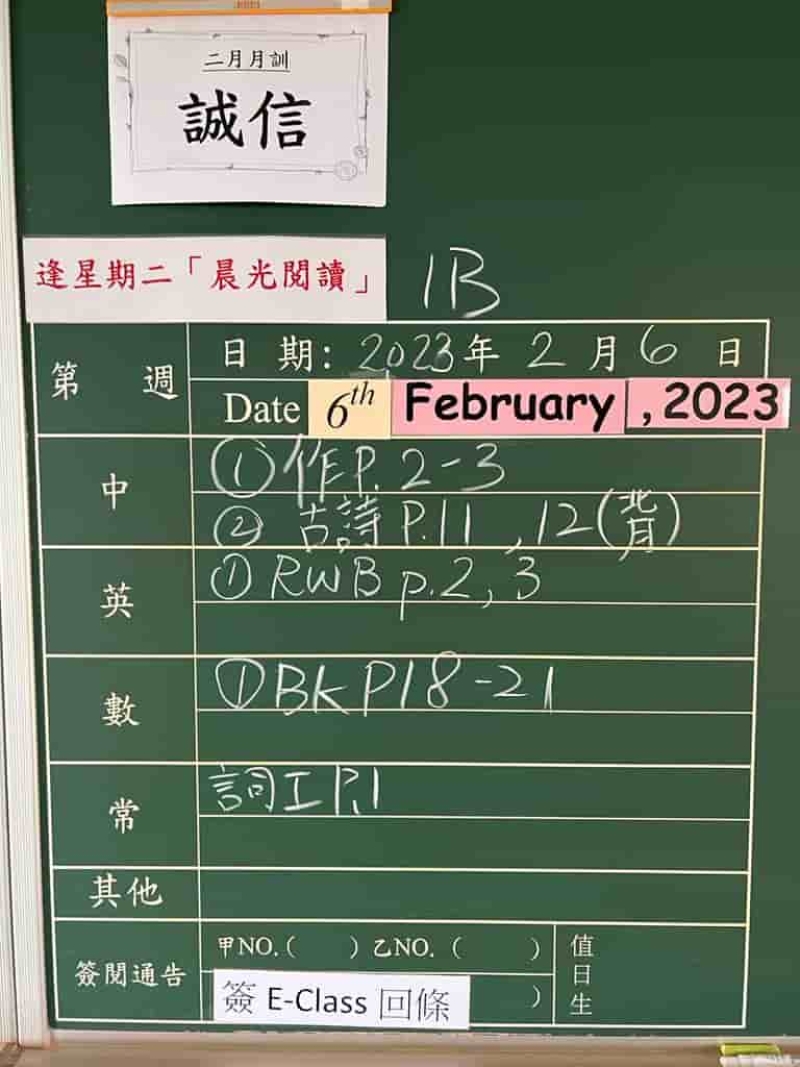 二月月訓
誠信
逢星期二「晨光閱讀」
1B
第 週
日 期: 2023年 2 月 6 日
Date 6th February , 2023
中
① 作P. 2-3
② 古詩 P.11 , 12 (背)
英
① RWB p.2, 3
數
① BK P18-21
常
詞工 P.1
其他
簽閱通告
甲NO. ( ) 乙NO. ( )
簽 E-Class 回條 )
值日生